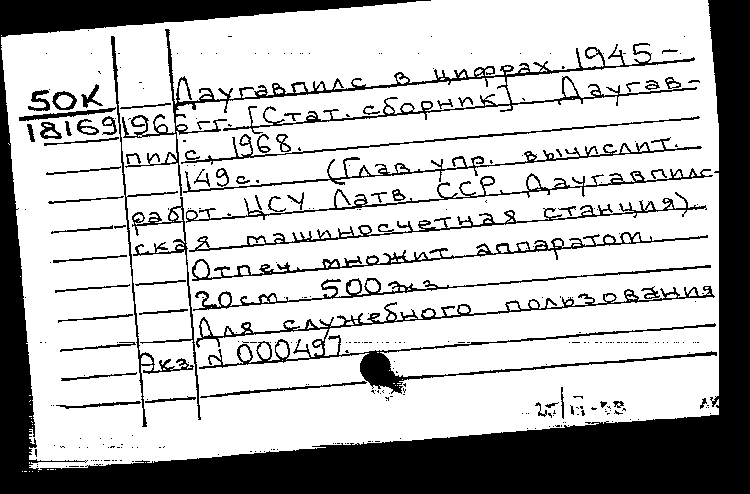 50К
18169
Даугавпилс в цифрах. 1945-
1966 гг. [Стат. сборник]. Даугав-
пилс, 1968.
149 с. (Глав. упр. вычислит.
работ. ЦСУ Латв. ССР. Даугавпилс-
ская машиносчетная станция).
Отпеч. множит аппаратом.
20 см. 500 экз.
Для служебного пользования
Экз. № 000497.